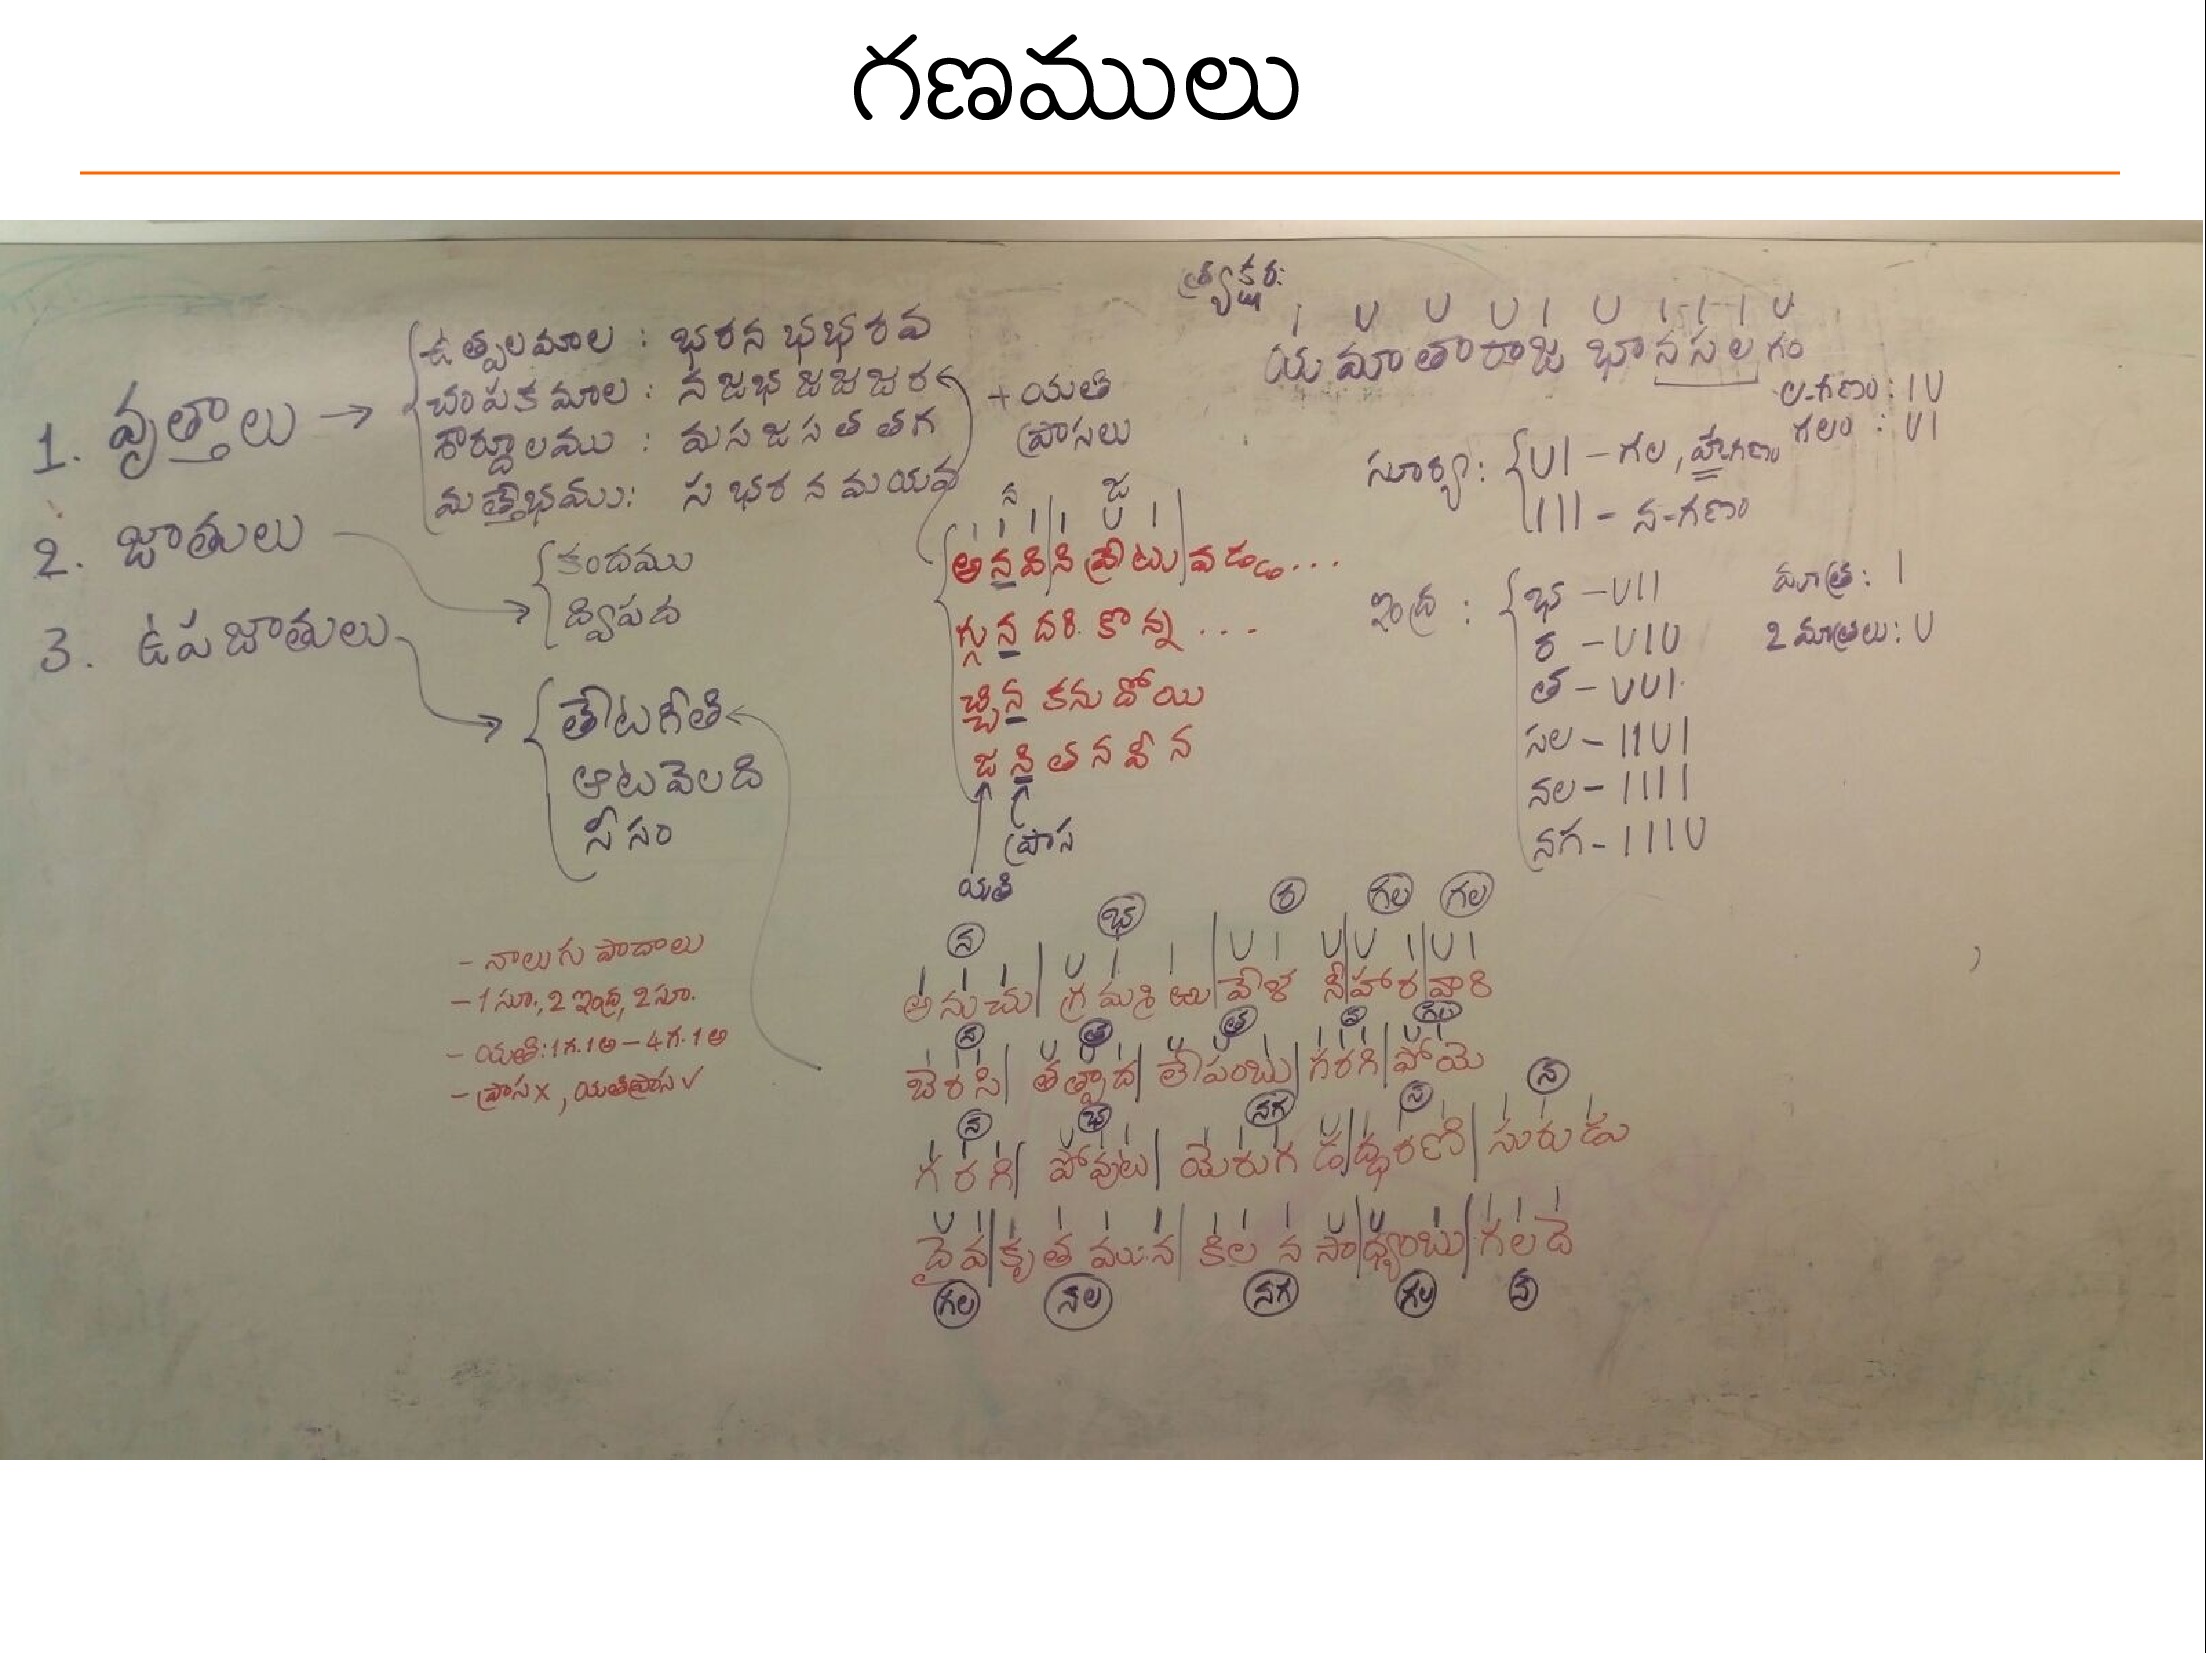 గణములు
1. వృత్తాలు →
ఉత్పలమాల : భరనభభరవ
చంపకమాల : నజభజజజర
శార్దూలము : మసజసతతగ
మత్తేభము: సభరనమయవ
+ యతి
ప్రాసలు
2. జాతులు
కందము
ద్విపద
3. ఉపజాతులు
తేటగీతి
ఆటవెలది
సీసం
- నాలుగు పాదాలు
- 1 సూ., 2 ఇంద్ర, 2 సూ.
- యతి: 1గ.1అ – 4గ.1అ
- ప్రాస x, యతిప్రాస v
త్ర్యక్షర:
I U U U I U I I I U
యమాతారాజభానసలగం
ల-గణం: I U
గలం : U I
సూర్య: U I – గల, హగణం
I I I – న-గణం
ఇంద్ర :
భ – U I I
ర – U I U
త – U U I
సల – I I U I
నల – I I I I
నగ – I I I U
మాత్ర: I
2 మాత్రలు: U
న జ
I I I I U I
అనవిని వడ...
గ్గునదరికొన్న ...
చ్చినకనుదోయి
జనితనవీన
ప్రాస
యతి
న భ ర గల గల
అనుచు గ్రమఱు వేళ నీహారవారి
న త త న గల
బెరసి తత్పాద లేపంబు గరగి పోయె
న భ నగ న న
గరగి పోవుట యేరుగ డద్ధరణీసురుడు
దైవకృతమున కిల నసాధ్యంబు గలదె
గల నల నగ గల న